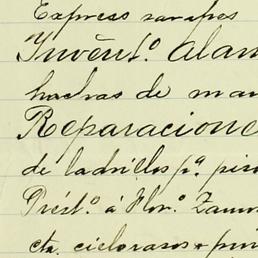 Express zarapes
Ynvènt.º alam
hachas de man
Reparacione
de ladrillos p.ª piso
Prést.º á Flor.º Zamo
cta. cielorasos + pin